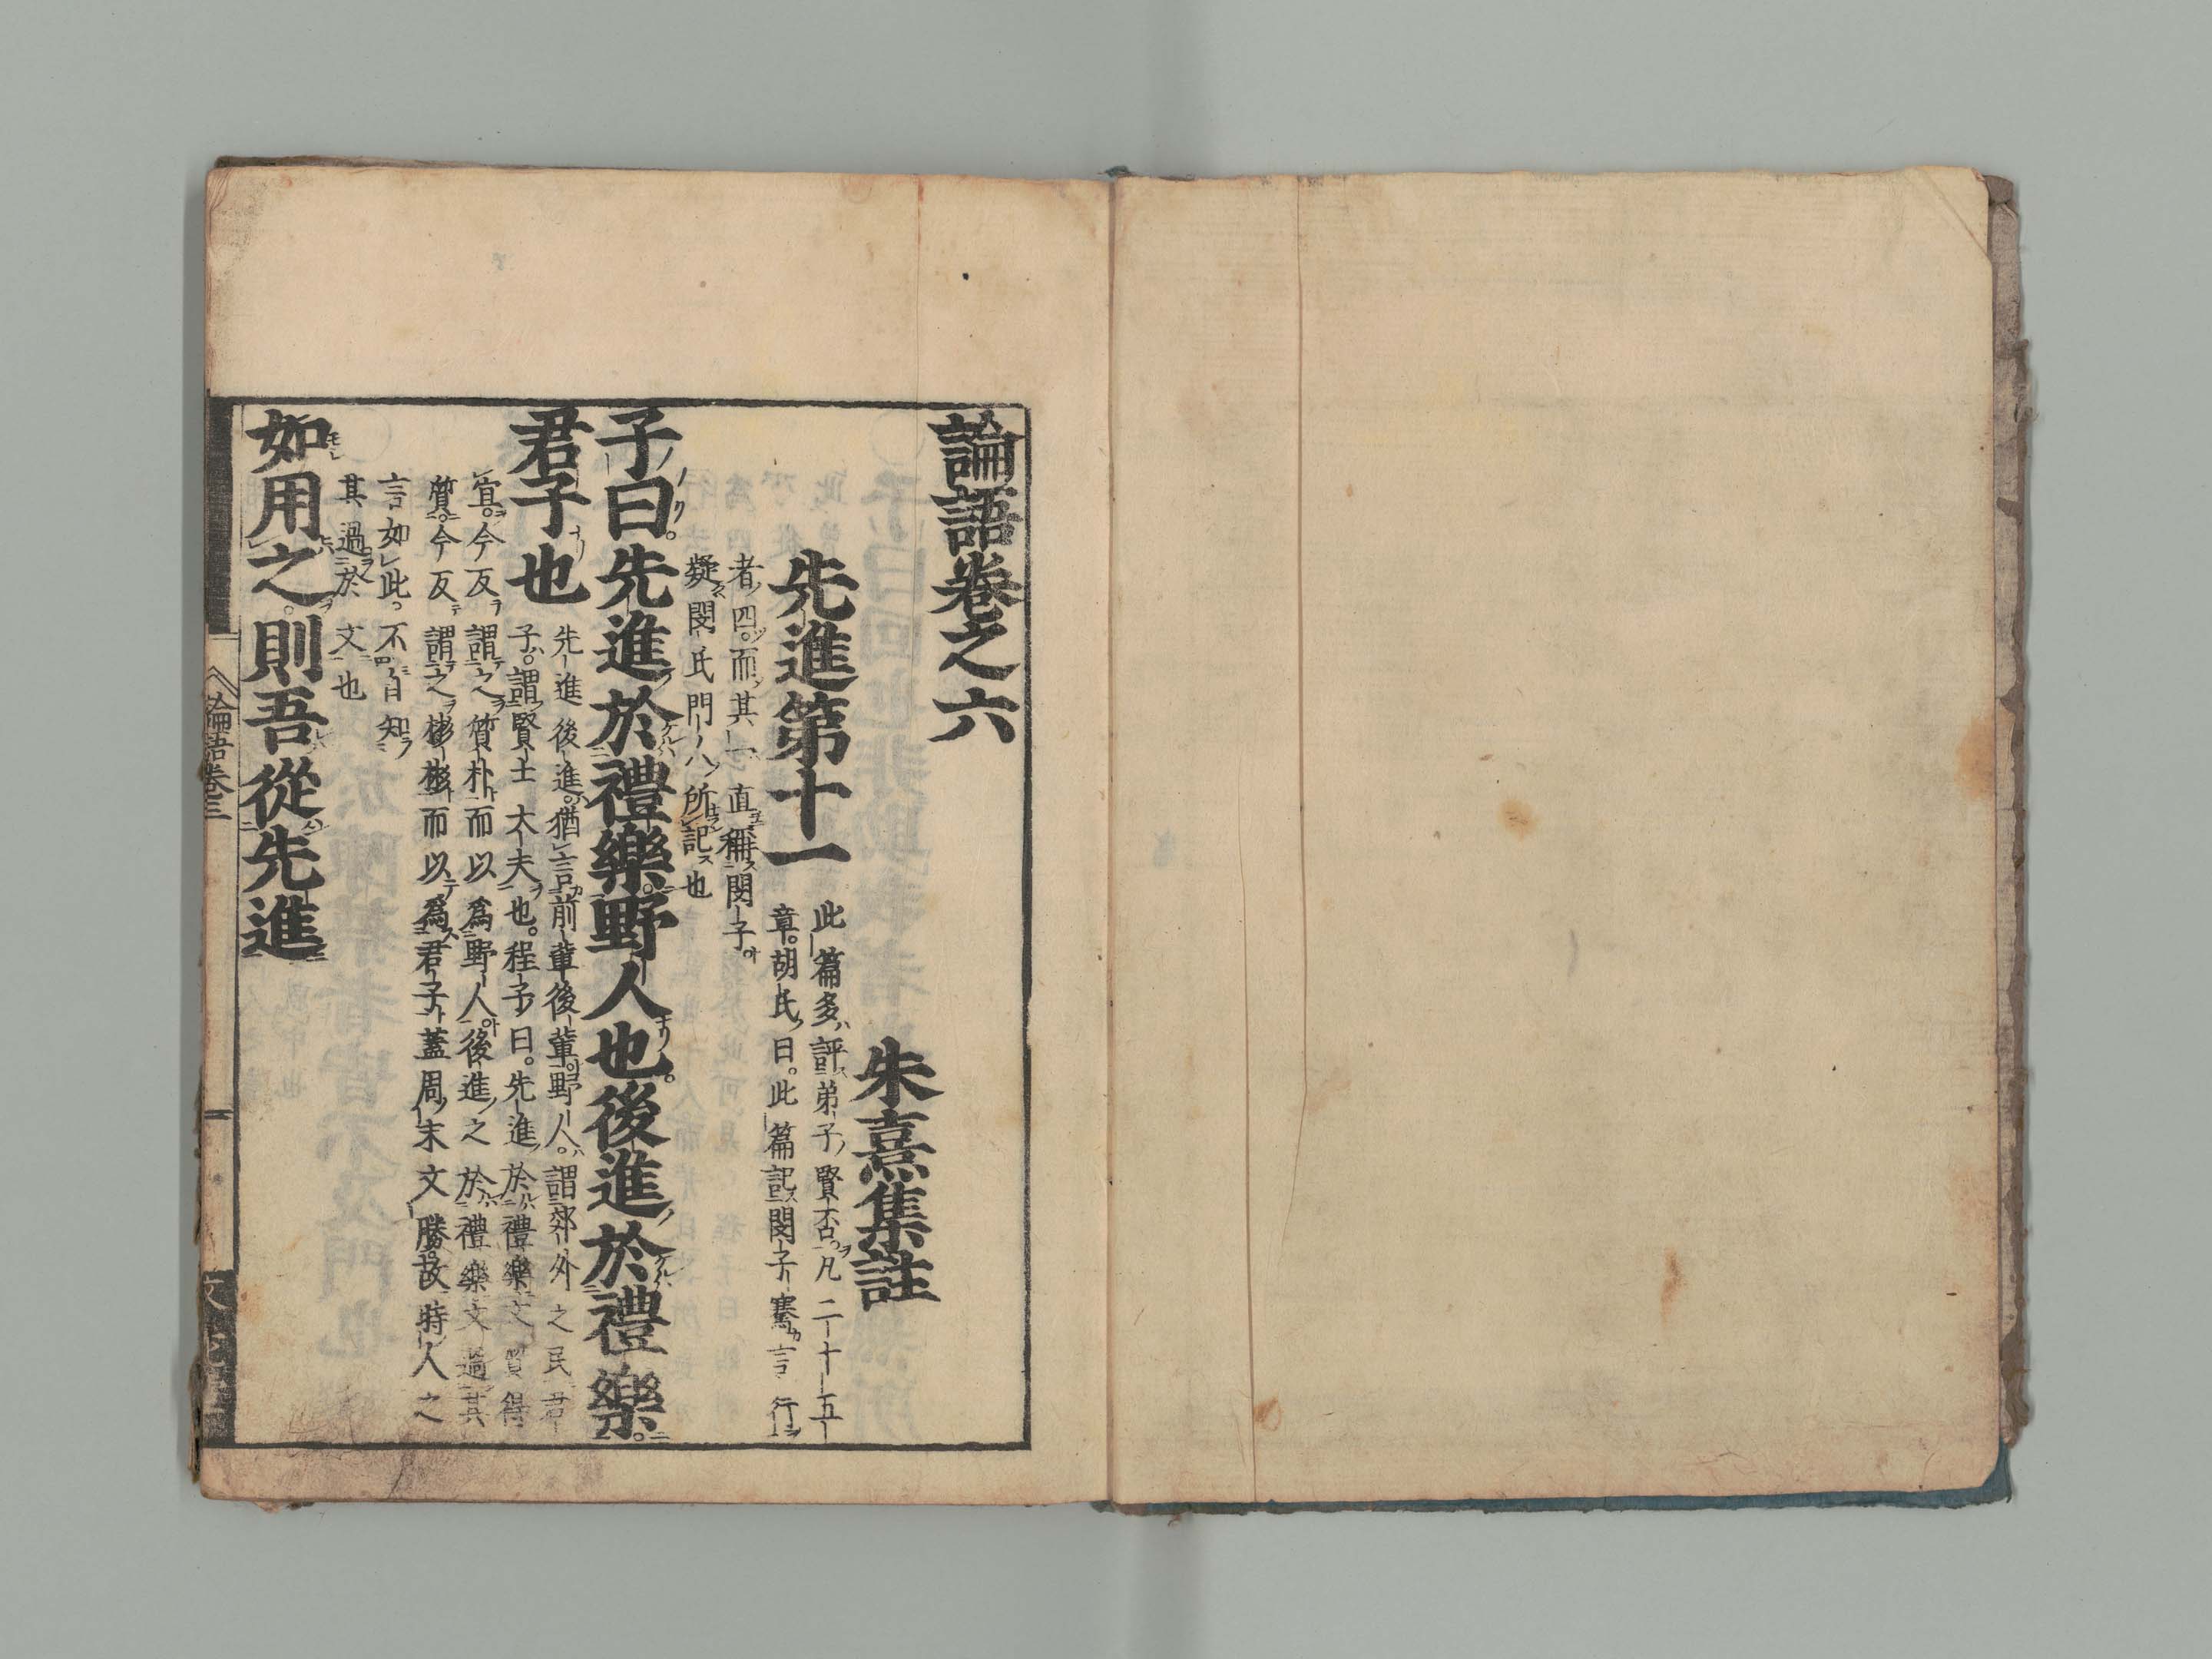 論語卷之六
朱熹集註
先進第十一
此篇多評弟子賢否凡二十五
章。胡氏曰。此篇記閔子騫言行
者四。而其一直稱閔子
疑閔氏門人所記也
子曰。先進於禮樂。野人也。後進於禮樂。
君子也
先進後進。猶言前輩後輩。野人。謂郊外之民君
子。謂賢士大夫也。程子曰。先進於禮樂文質得
宜。今反謂之質朴而以爲野人。後進之於禮樂文過其
質。今反謂之彬彬而以爲君子蓋周末文勝。故時人之
言如此。不自知
其過於文也
如用之。則吾從先進
論語卷三
一